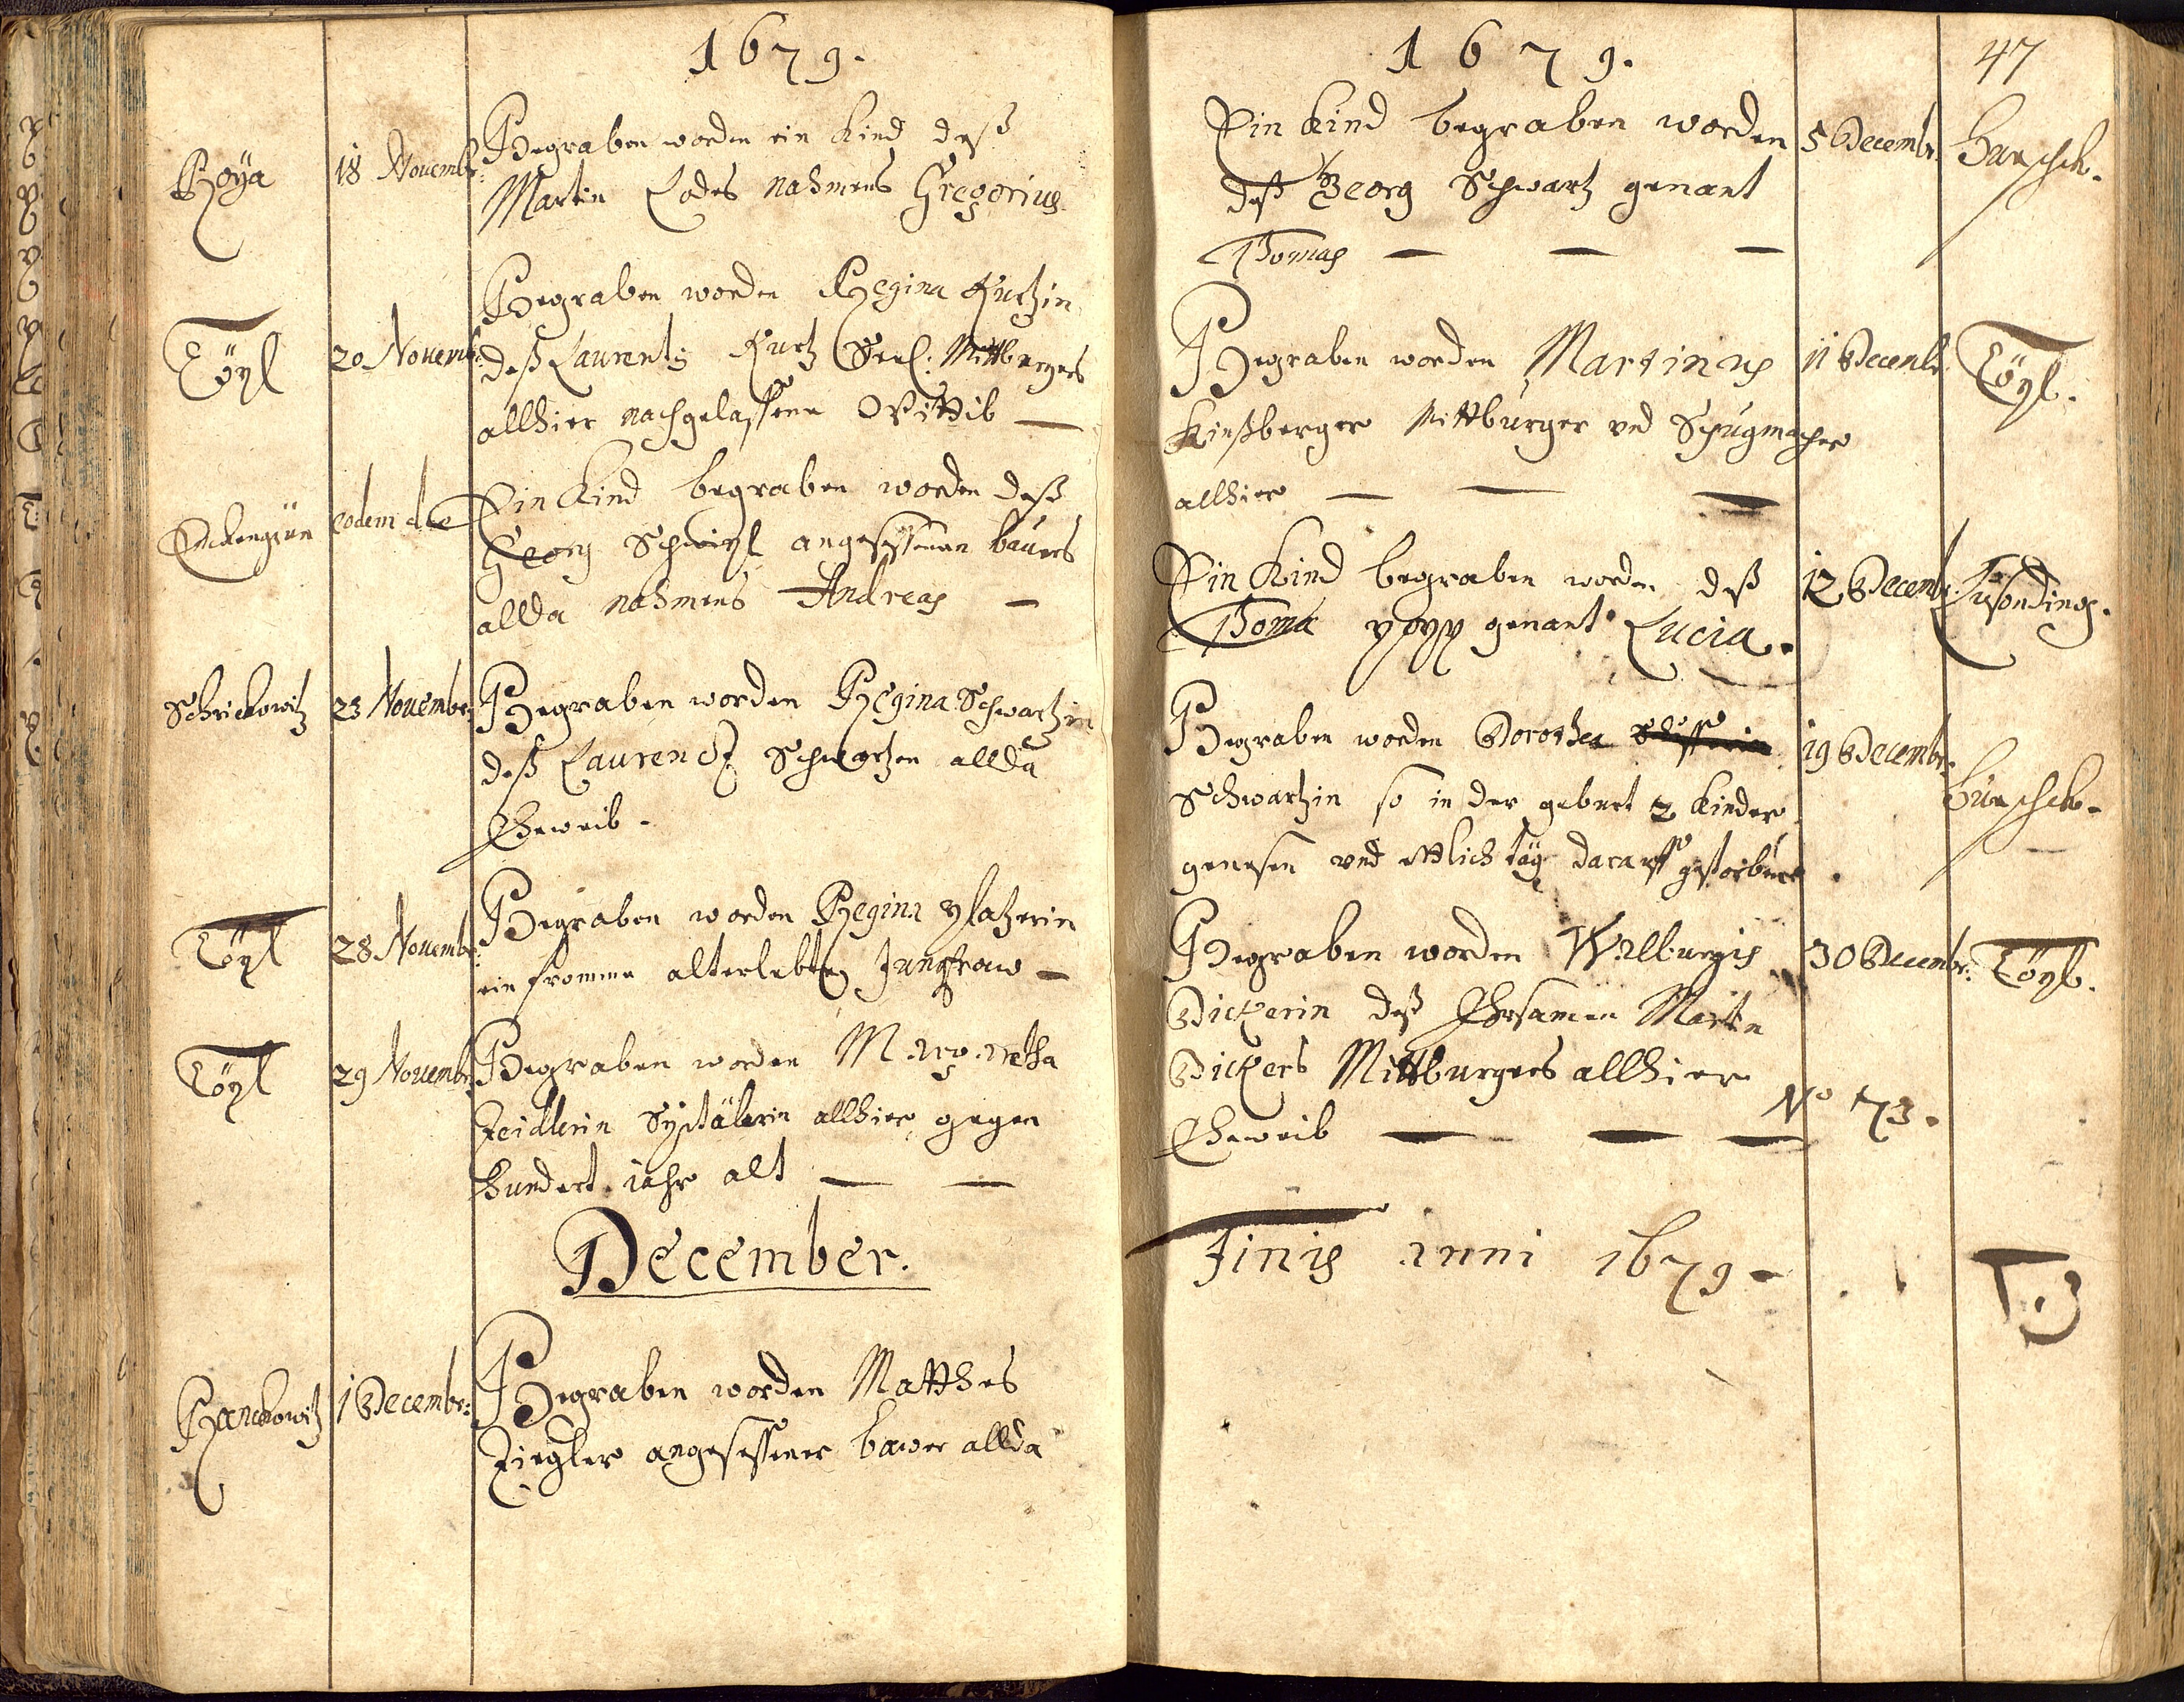 1679.
Roÿa
18 Novembr:
Begraben worden ein Kind deß
Martin Lodes nahmens Gregorius.
Töyl
20 Novembr:
Begraben worden Regina Kurtzin
deß Laurentz Kurtz Seel: Mittburgers
allhier nachgelassene Wittib —
eodem die
Ein Kind begraben worden deß
Georg angesessenen baüers
allda nahmens Andreas —
Schrickowitz
23 Novembr:
Begraben worden Regina Schwartzin
deß Laurentz Schwartzen allda
Eheweib.
Töyl
28 Novembr:
Begraben worden Regina
ein fromme alterlebte Jungfraw —
Töyl
29 Novembr:
Begraben worden Margaretha
Zeidlerin Spitälerin allhier gegen
hundert iahr alt — —
December.
Ranckowitz
1 Decembr:
Begraben worden Matthes
Ziegler angesessener bawer allda
1679.
47
Ein Kind begraben worden
5 Decembr:
deß Georg Schwartz genant
Thomas — — —
Begraben worden Martinus
11 Decembr
Töyl.
Mittburger und Schugmacher
allhier — — —
Ein Kind begraben worden deß
12 Decembr:
Thoma genant Lucia.
Begraben worden Dorothea
19 Decembr:
Schwartzin so in der geburt 2 Kinder
genesen und ettlich täg darauff gestorben.
Begraben worden Walburgis
30 Decembr:
Töyl.
Bickerin deß Ehrsamen Martin
Bickers Mittburgers allhier
Eheweib — — —
No 73.
Finis anni 1679.